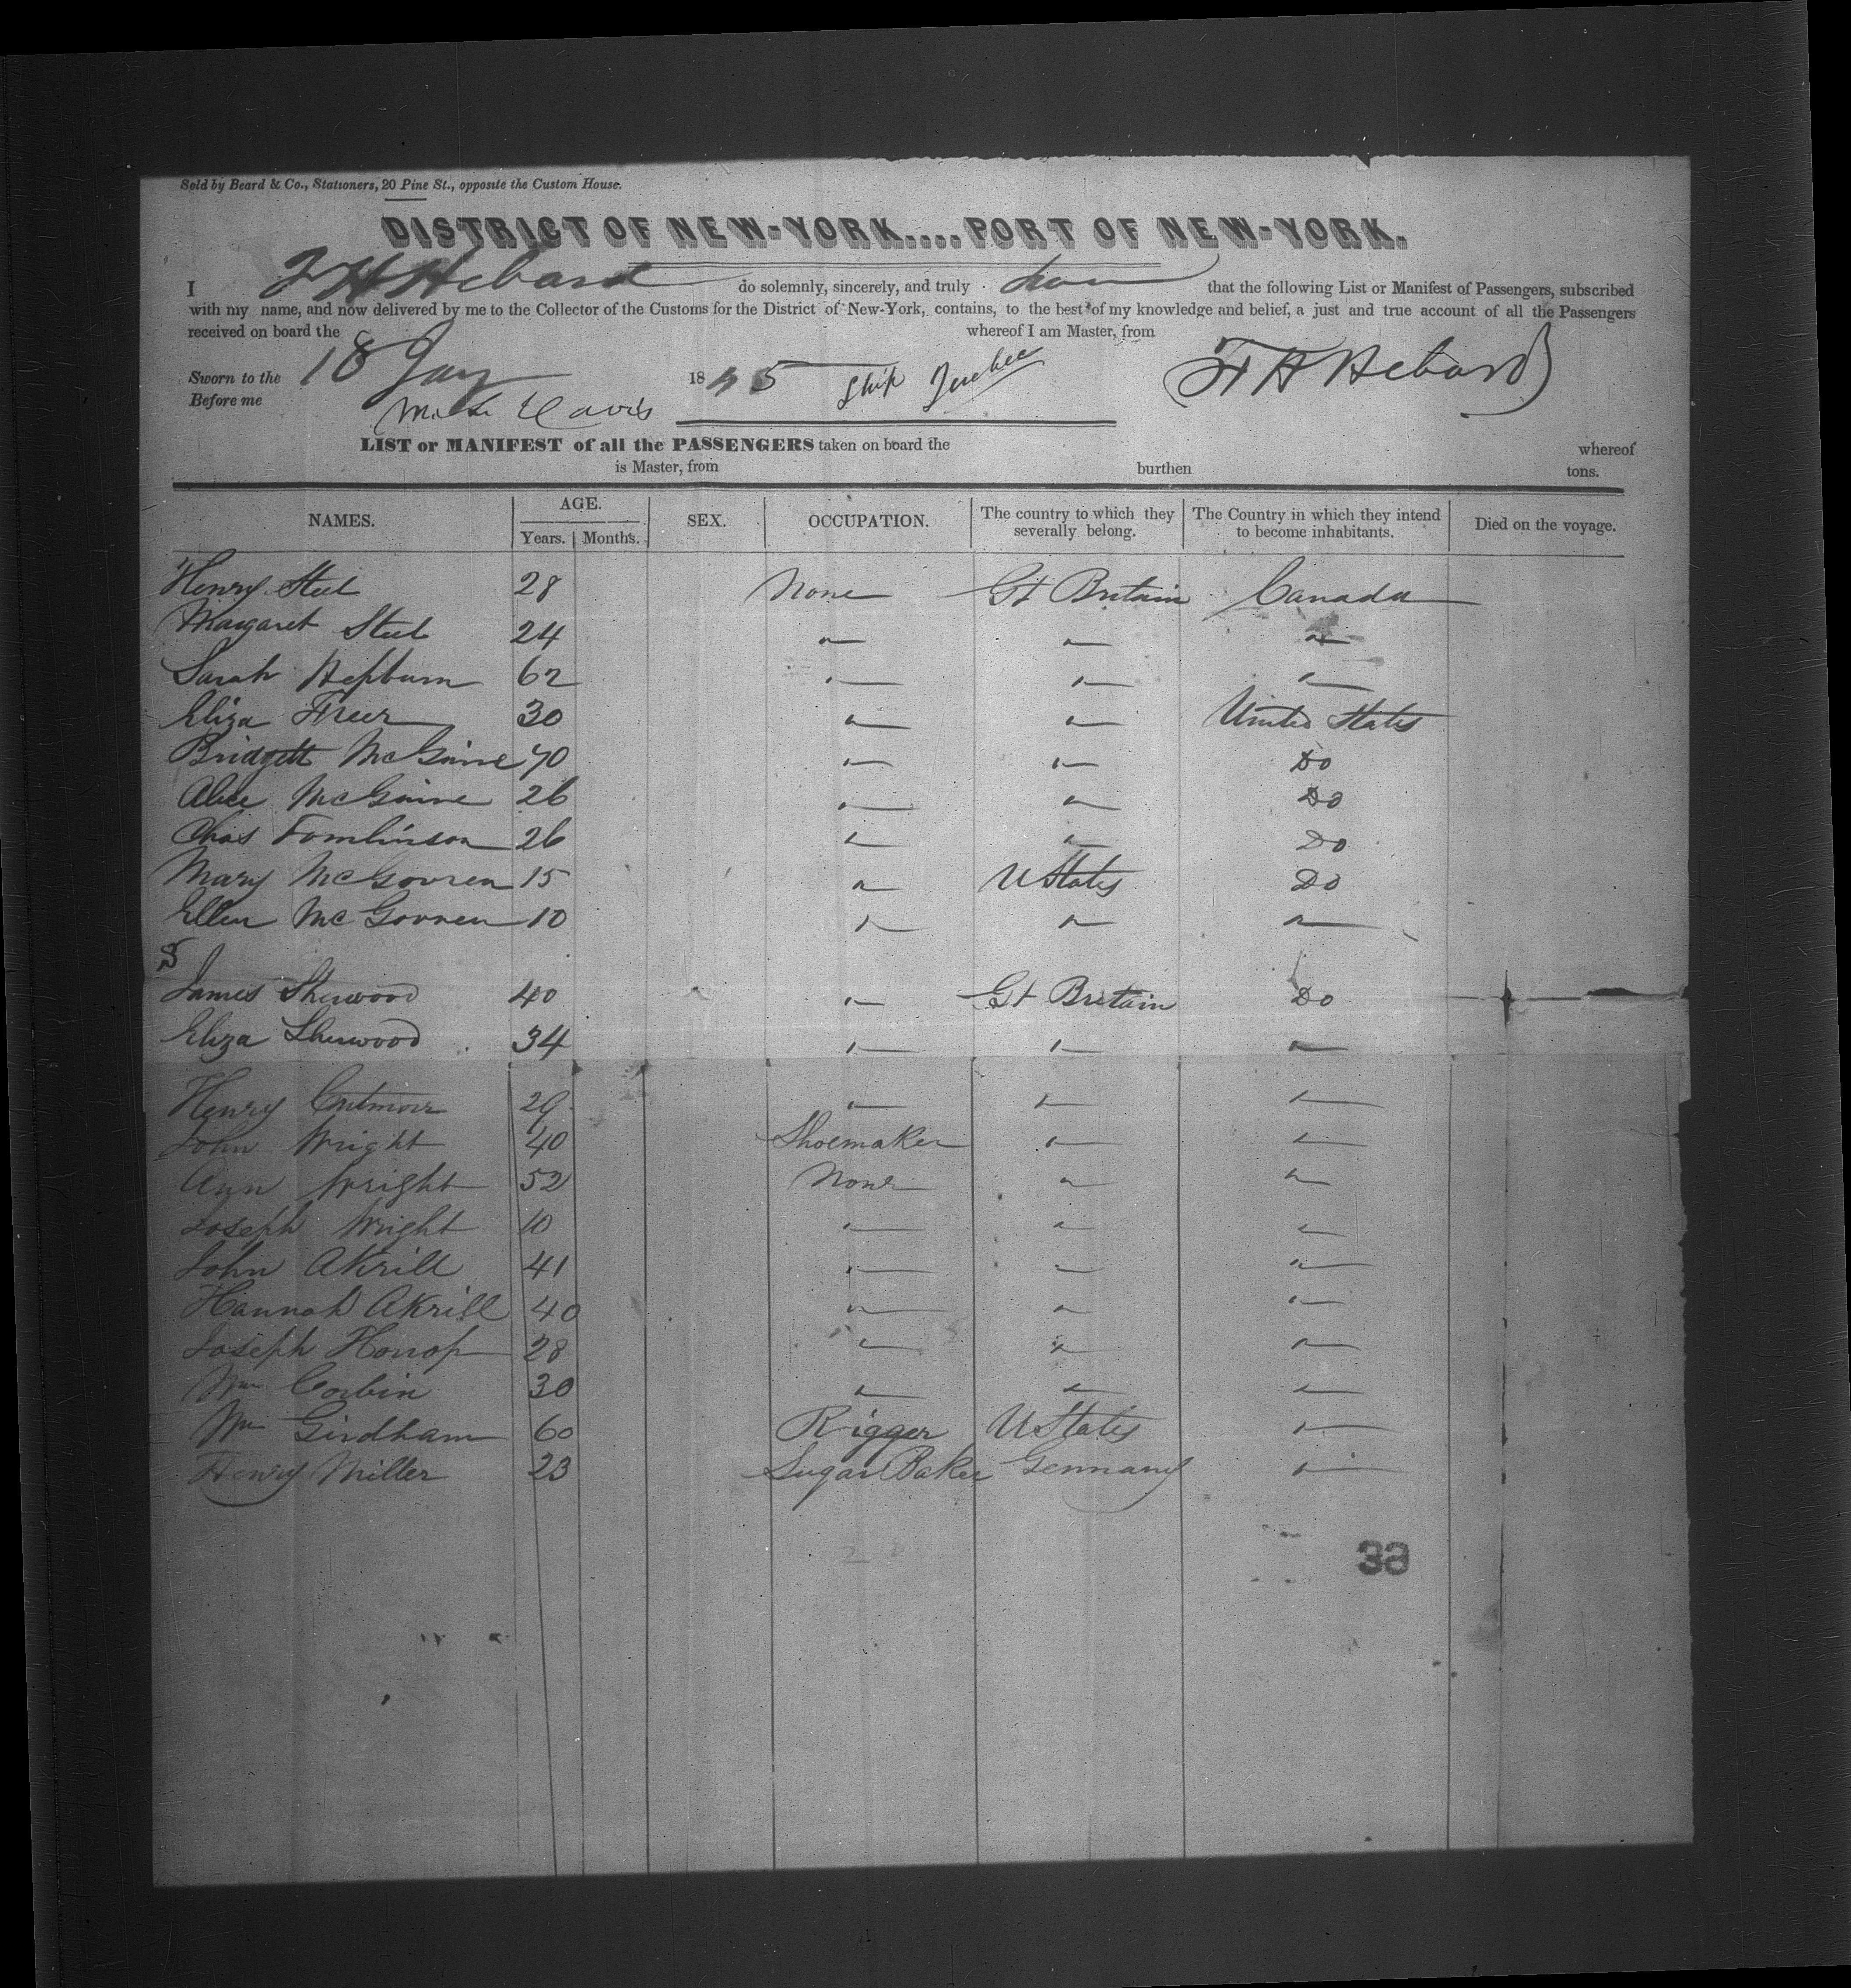 Sold by Beard & Co., Stationers, 20 Pine St., opposite the Custom House.
DISTRICT OF NEW-YORK....PORT OF NEW-YORK.
I F H Hebard do solemnly, sincerely, and truly swear that the following List or Manifest of Passengers, subscribed
with my name, and now delivered by me to the Collector of the Customs for the District of New-York, contains, to the best of my knowledge and belief, a just and true account of all the Passengers
received on board the whereof I am Master, from
Sworn to the 18 Jany 1845 Ship Quebec F H Hebard
Before me Davis
LIST or MANIFEST of all the PASSENGERS taken on board the whereof
is Master, from burthen tons.
NAMES. AGE. Years. Months. SEX. OCCUPATION. The country to which they severally belong. The Country in which they intend to become inhabitants. Died on the voyage.
Henry Steel 28 None Gt Britain Canada
Margaret Steel 24 " " "
Sarah Hepburn 62 " " "
Eliza Freer 30 " " United States
Bridgett McGuire 70 " " Do
Alice McGuire 26 " " Do
Chas Tomlinson 26 " " Do
Mary McGovren 15 " U States Do
Ellen McGovren 10 " " "
James Sherwood 40 " Gt Britain Do
Eliza Sherwood 34 " " "
Henry 29 " " "
John Wright 40 Shoemaker " "
Ann Wright 52 None " "
Joseph Wright 10 " " "
John Akrill 41 " " "
Hannah Akrill 40 " " "
Joseph Horrop 28 " " "
Wm Corbin 30 " " "
Wm Girdham 60 Rigger U States "
Henry Miller 23 Sugar Baker Germany "
33